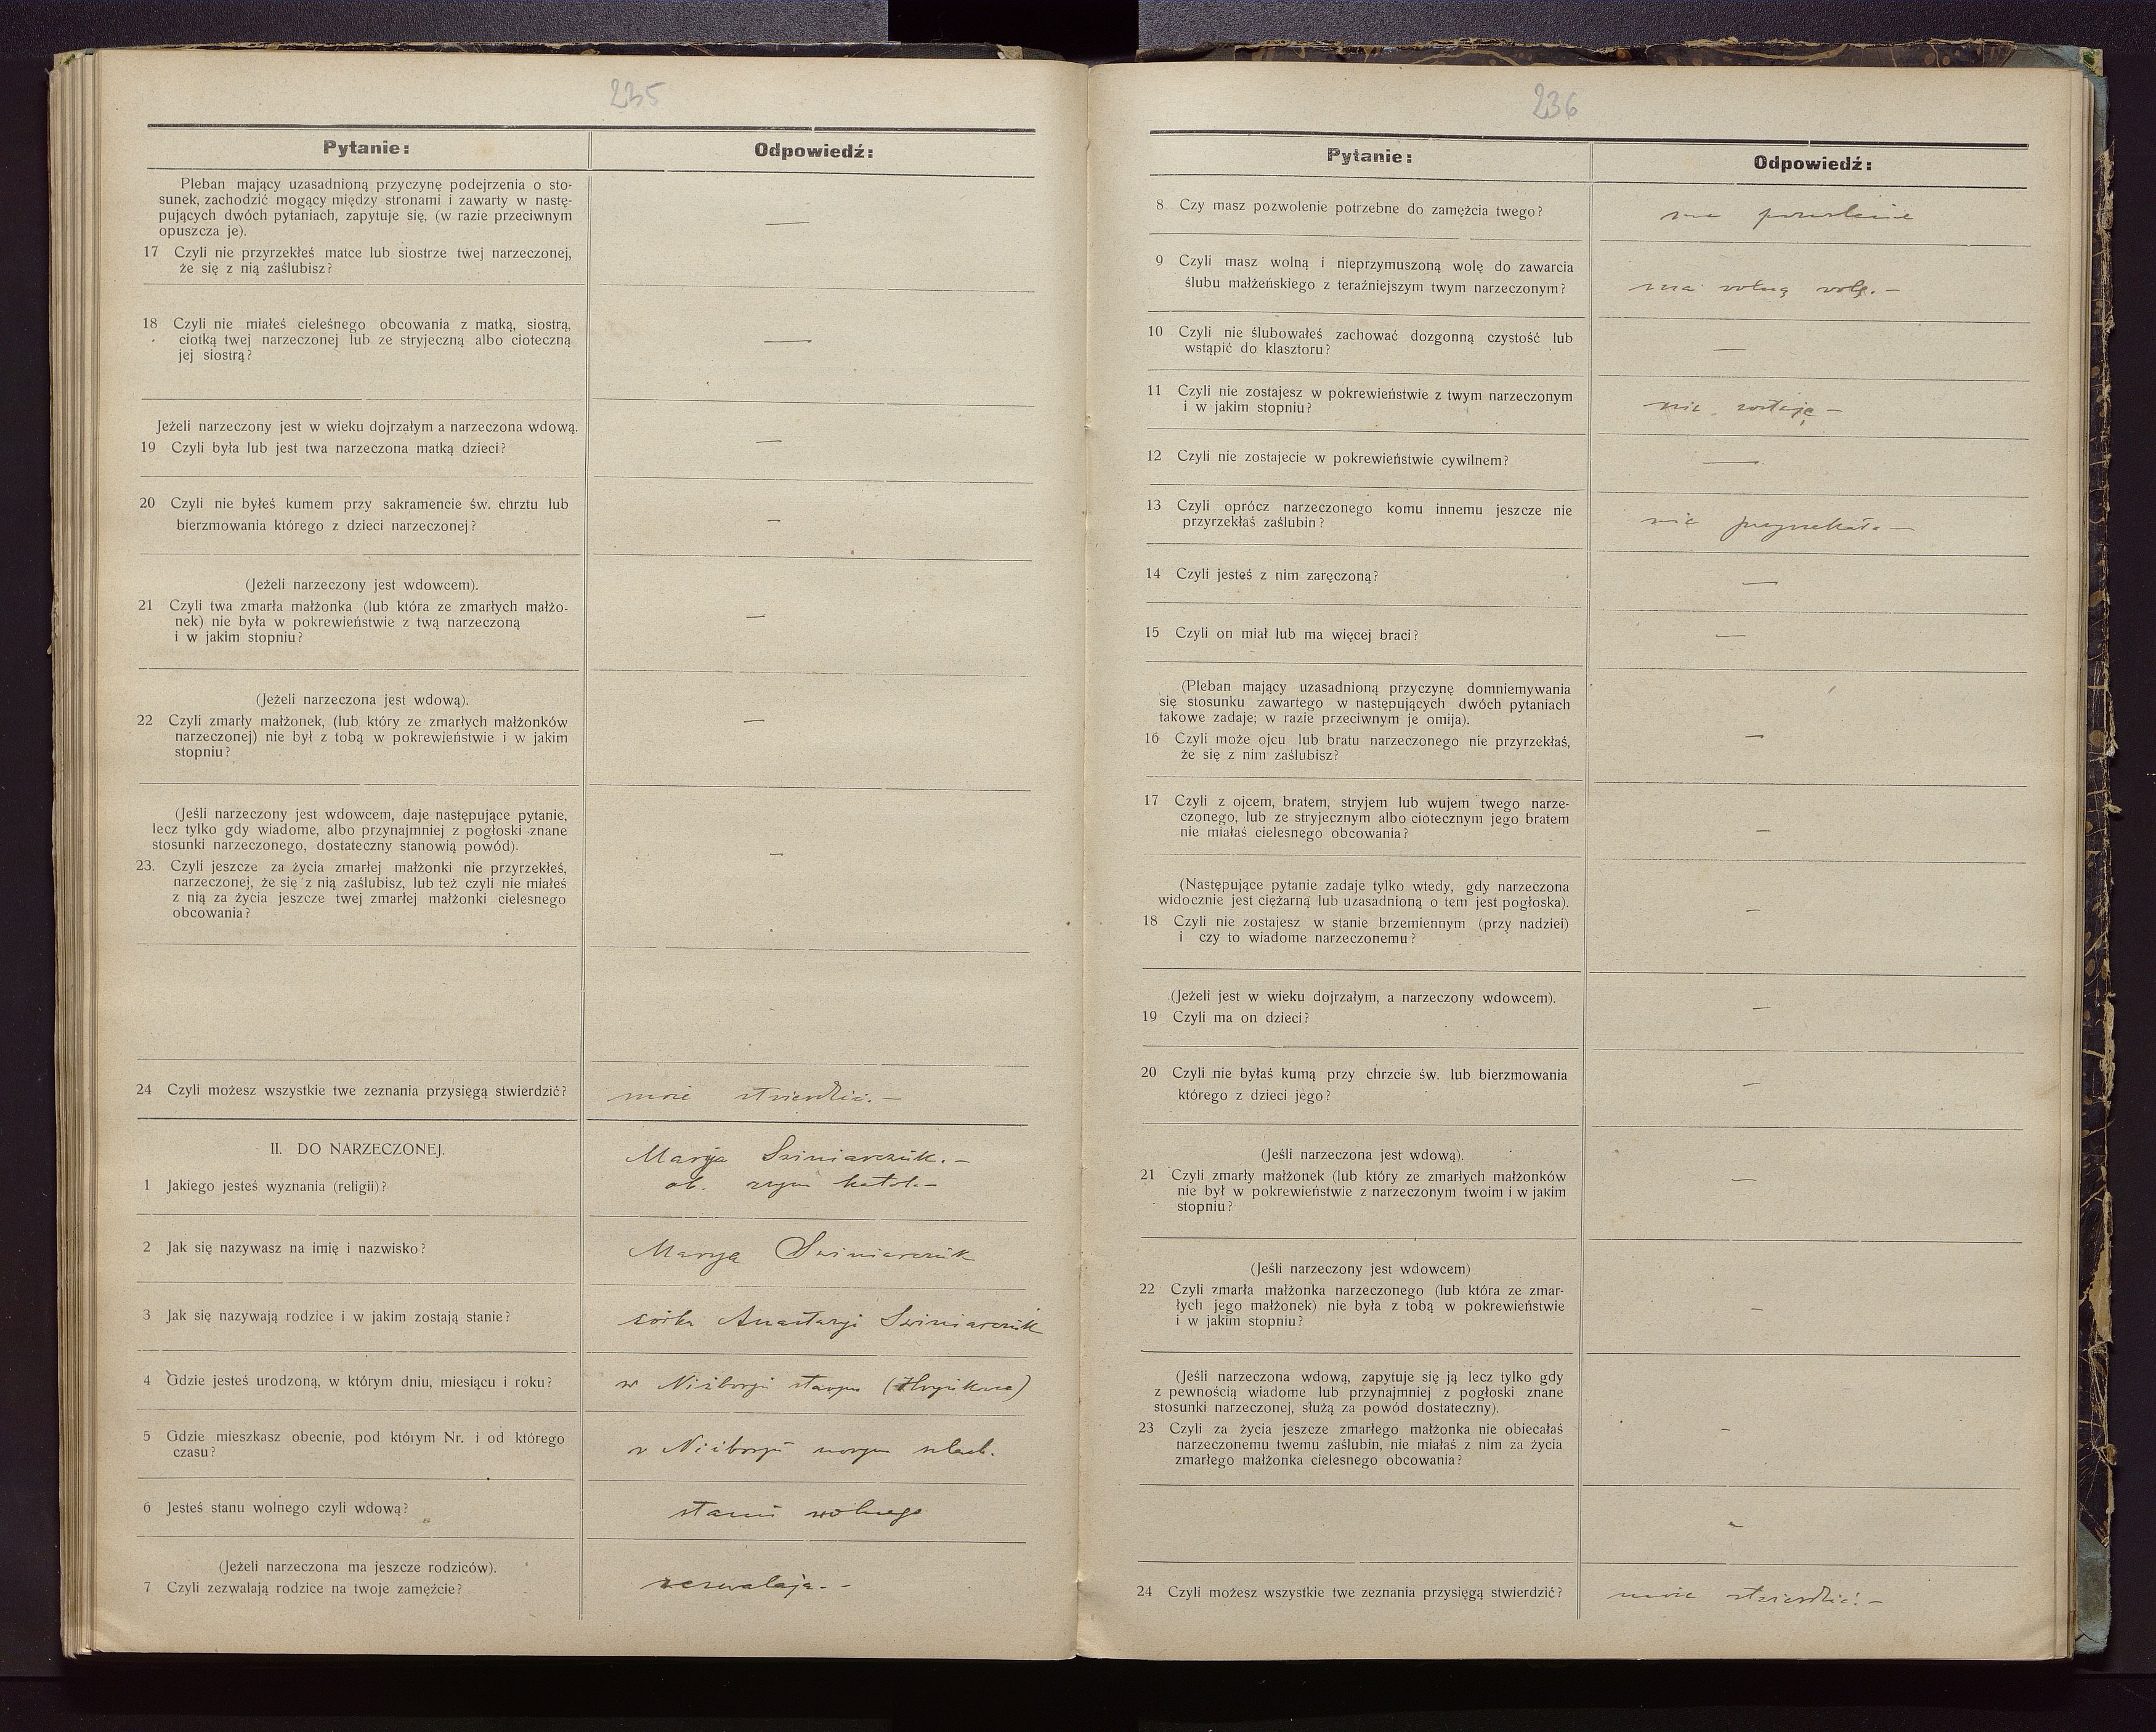 235
Pytanie:
Odpowiedź:
Pleban mający uzasadnioną przyczynę podejrzenia o sto-
sunek, zachodzić mogący między stronami i zawarty w nastę-
pujących dwóch pytaniach, zapytuje się, (w razie przeciwnym
opuszcza je).
—
17 Czyli nie przyrzekłeś matce lub siostrze twej narzeczonej,
że się z nią zaślubisz?
18 Czyli nie miałeś cieleśnego obcowania z matką, siostrą,
ciotką twej narzeczonej lub ze stryjeczną albo cioteczną
jej siostrą?
—
Jeżeli narzeczony jest w wieku dojrzałym a narzeczona wdową.
19 Czyli była lub jest twa narzeczona matką dzieci?
—
20 Czyli nie byłeś kumem przy sakramencie św. chrztu lub
bierzmowania którego z dzieci narzeczonej?
—
(Jeżeli narzeczony jest wdowcem).
21 Czyli twa zmarła małżonka (lub która ze zmarłych małżo-
nek) nie była w pokrewieństwie z twą narzeczoną
i w jakim stopniu?
—
(Jeżeli narzeczona jest wdową).
22 Czyli zmarły małżonek, (lub który ze zmarłych małżonków
narzeczonej) nie był z tobą w pokrewieństwie i w jakim
stopniu?
—
(Jeśli narzeczony jest wdowcem, daje następujące pytanie,
lecz tylko gdy wiadome, albo przynajmniej z pogłoski znane
stosunki narzeczonego, dostateczny stanowią powód).
23. Czyli jeszcze za życia zmarłej małżonki nie przyrzekłeś,
narzeczonej, że się z nią zaślubisz, lub też czyli nie miałeś
z nią za życia jeszcze twej zmarłej małżonki cielesnego
obcowania?
—
24 Czyli możesz wszystkie twe zeznania przysięgą stwierdzić?
może stwierdzić. —
II. DO NARZECZONEJ.
Marya Świniarczuk. —
1 Jakiego jesteś wyznania (religii)?
ob. rzym katol. —
2 Jak się nazywasz na imię i nazwisko?
Marya Świniarczuk
3 Jak się nazywają rodzice i w jakim zostają stanie?
córka Anastazyi Świniarczuk
4 Gdzie jesteś urodzoną, w którym dniu, miesiącu i roku?
w Niżborgu starym
5 Gdzie mieszkasz obecnie, pod którym Nr. i od którego
czasu?
w Niżborgu nowym szlach.
6 Jesteś stanu wolnego czyli wdową?
stanu wolnego
(Jeżeli narzeczona ma jeszcze rodziców).
7 Czyli zezwalają rodzice na twoje zamęźcie?
zezwalają. —
236
Pytanie:
Odpowiedź:
8 Czy masz pozwolenie potrzebne do zamężcia twego?
ma pozwolenie
9 Czyli masz wolną i nieprzymuszoną wolę do zawarcia
ślubu małżeńskiego z teraźniejszym twym narzeczonym?
ma wolną wolę. —
10 Czyli nie ślubowałeś zachować dozgonną czystość lub
wstąpić do klasztoru?
—
11 Czyli nie zostajesz w pokrewieństwie z twym narzeczonym
i w jakim stopniu?
nie zostaję —
12 Czyli nie zostajecie w pokrewieństwie cywilnem?
—
13 Czyli oprócz narzeczonego komu innemu jeszcze nie
przyrzekłaś zaślubin?
nie przyrzekała —
14 Czyli jesteś z nim zaręczoną?
—
15 Czyli on miał lub ma więcej braci?
—
(Pleban mający uzasadnioną przyczynę domniemywania
się stosunku zawartego w następujących dwóch pytaniach
takowe zadaje; w razie przeciwnym je omija).
16 Czyli może ojcu lub bratu narzeczonego nie przyrzekłaś,
że się z nim zaślubisz?
—
17 Czyli z ojcem, bratem, stryjem lub wujem twego narze-
czonego, lub ze stryjecznym albo ciotecznym jego bratem
nie miałaś cielesnego obcowania?
—
(Następujące pytanie zadaje tylko wtedy, gdy narzeczona
widocznie jest ciężarną lub uzasadnioną o tem jest pogłoska).
18 Czyli nie zostajesz w stanie brzemiennym (przy nadziei)
i czy to wiadome narzeczonemu?
—
(Jeżeli jest w wieku dojrzałym, a narzeczony wdowcem).
19 Czyli ma on dzieci?
—
20 Czyli nie byłaś kumą przy chrzcie św. lub bierzmowania
którego z dzieci jego?
—
(Jeśli narzeczona jest wdową).
21 Czyli zmarły małżonek (lub który ze zmarłych małżonków
nie był w pokrewieństwie z narzeczonym twoim i w jakim
stopniu?
—
(Jeśli narzeczony jest wdowcem)
22 Czyli zmarła małżonka narzeczonego (lub która ze zmar-
łych jego małżonek) nie była z tobą w pokrewieństwie
i w jakim stopniu?
—
(Jeśli narzeczona wdową, zapytuje się ją lecz tylko gdy
z pewnością wiadome lub przynajmniej z pogłoski znane
stosunki narzeczonej, służą za powód dostateczny).
23 Czyli za życia jeszcze zmarłego małżonka nie obiecałaś
narzeczonemu twemu zaślubin, nie miałaś z nim za życia
zmarłego małżonka cielesnego obcowania?
—
—
24 Czyli możesz wszystkie twe zeznania przysięgą stwierdzić?
może stwierdzić. —